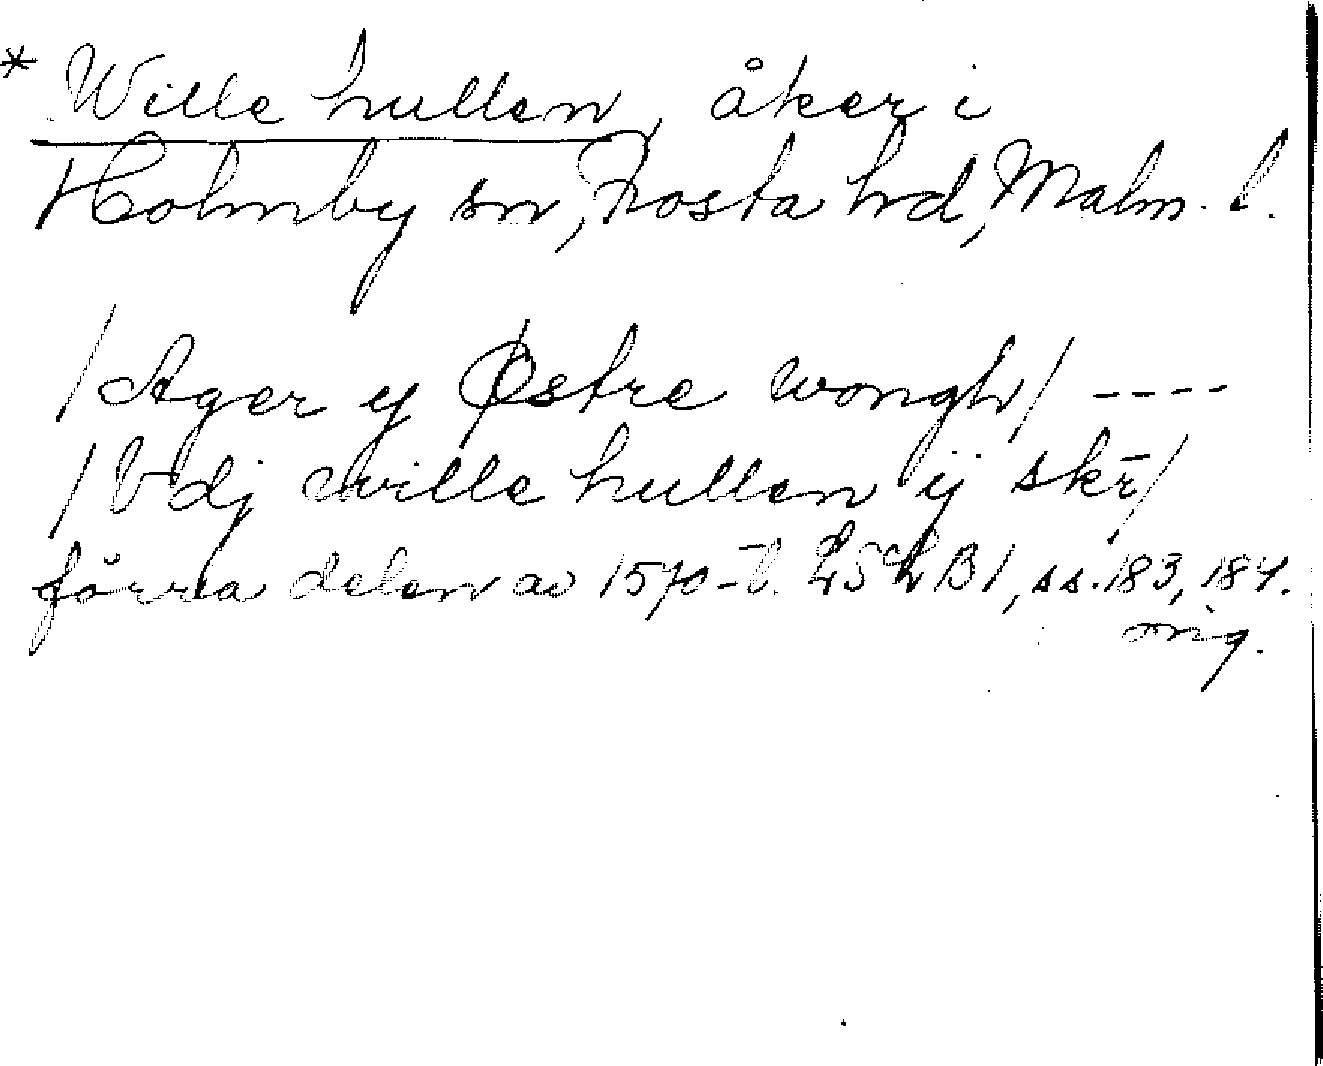 * Wille hullen, åker i
Holmby sn, Frosta hd, Malm. l.
/Ager y Østre wongh/ ----
/Vdj wille hullen ij skr̄/
förra delen av 1570-t. LSLB1, ss. 183, 184.
orig.